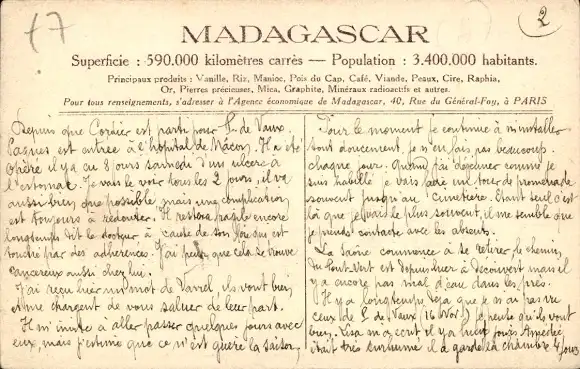 17
2
MADAGASCAR
Superficie : 590.000 kilomètres carrés — Population : 3.400.000 habitants.
Principaux produits : Vanille, Riz, Manioc, Pois du Cap, Café, Viande, Peaux, Cire, Raphia,
Or, Pierres précieuses, Mica, Graphite, Minéraux radioactifs et autres.
Pour tous renseignements, s'adresser à l'Agence économique de Madagascar, 40, Rue du Général-Foy, à PARIS
Depuis que Cordier est parti pour S. de Vaux,
est entrée à l'hôpital de Mâcon. Il a été
opéré il y a eu 8 jours samedi d'un ulcère à
l'estomac. Je vais le voir tous les 2 jours, il va
aussi bien que possible, mais une complication
est toujours à redouter. Il restera fragile encore
longtemps dit le docteur à cause de son foie qui est
touché par des adhérences. J'ai peur que cela se trouve
cancereux aussi chez lui.
J'ai reçu hier un mot de ils vont bien
et me chargent de vous saluer de leur part.
Il m'invite à aller passer quelques jours avec
eux, mais j'estime que ce n'est guère la saison,
Pour le moment je continue à m'installer
tout doucement, je n'en fais pas beaucoup
chaque jour. Quand j'ai déjeuner comme je
suis habillé je vais faire un tour de promenade
souvent jusqu'au cimetière. Étant seul c'est
là que je vais le plus souvent, il me semble que
je prends contacte avec les absents.
La Saône commence à se retirer, le chemin
du Pont-Vert est depuis hier à découvert mais il
y a encore pas mal d'eau dans les prés.
Il y a longtemps déjà que je n'ai pas vu
ceux de S. de Vaux (16 Nov.) je pense qu'ils vont
bien. m'a écrit il y a huit jours Amédée
était très enrhumé il a gardé la chambre 4 jours